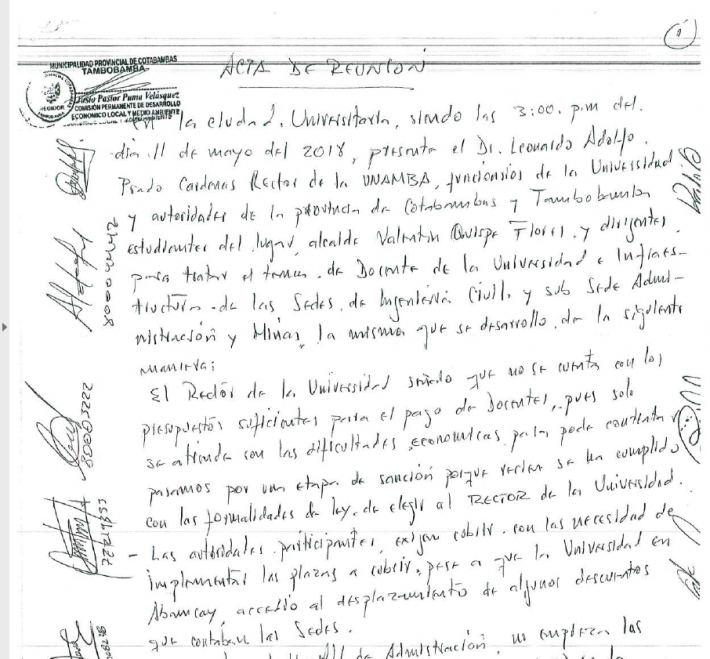 1
MUNICIPALIDAD PROVINCIAL DE COTABAMBAS
TAMBOBAMBA
Justo Pastor Puma Velásquez
COMISIÓN PERMANENTE DE DESARROLLO
ECONOMICO LOCAL Y MEDIO AMBIENTE
REGIDOR
ACTA DE REUNION
En la ciudad, Universitaria, siendo las 3:00. p.m del.
dia 11 de mayo del 2018, presente el Dr. Leonardo Adolfo.
Prado Cardenas Rector de la UNAMBA, funcionarios de la Universidad
y autoridades de la provincia de Cotabambas y Tambobamba
estudiantes del lugar, alcalde Valentin Quispe Flores, y dirigentes
para tratar el tema. de Docente de la Universidad e Infraes-
tructura de las Sedes. de Ingenieria Civil, y sub Sede Admi-
nistración y Minas, la misma que se desarrollo, de la siguiente
manera:
El Rector de la Universidad señalo que no se cuenta con los
presupuestos suficientes para el pago de Docentes, pues solo
se atiende con las dificultades economicas para poder
pasamos por una etapa de sanción porque recien se ha cumplido
con las formalidades de ley, de elegir al RECTOR de la Universidad.
- Las autoridades participantes, exigen cobrir. con las necesidad de
implementar las plazas a cobrir, pese a que la Universidad en
Abancay, accedio al desplazamiento de algunos
que contaban las Sedes.
de Admistración, no empiezan las
80004442
80005222